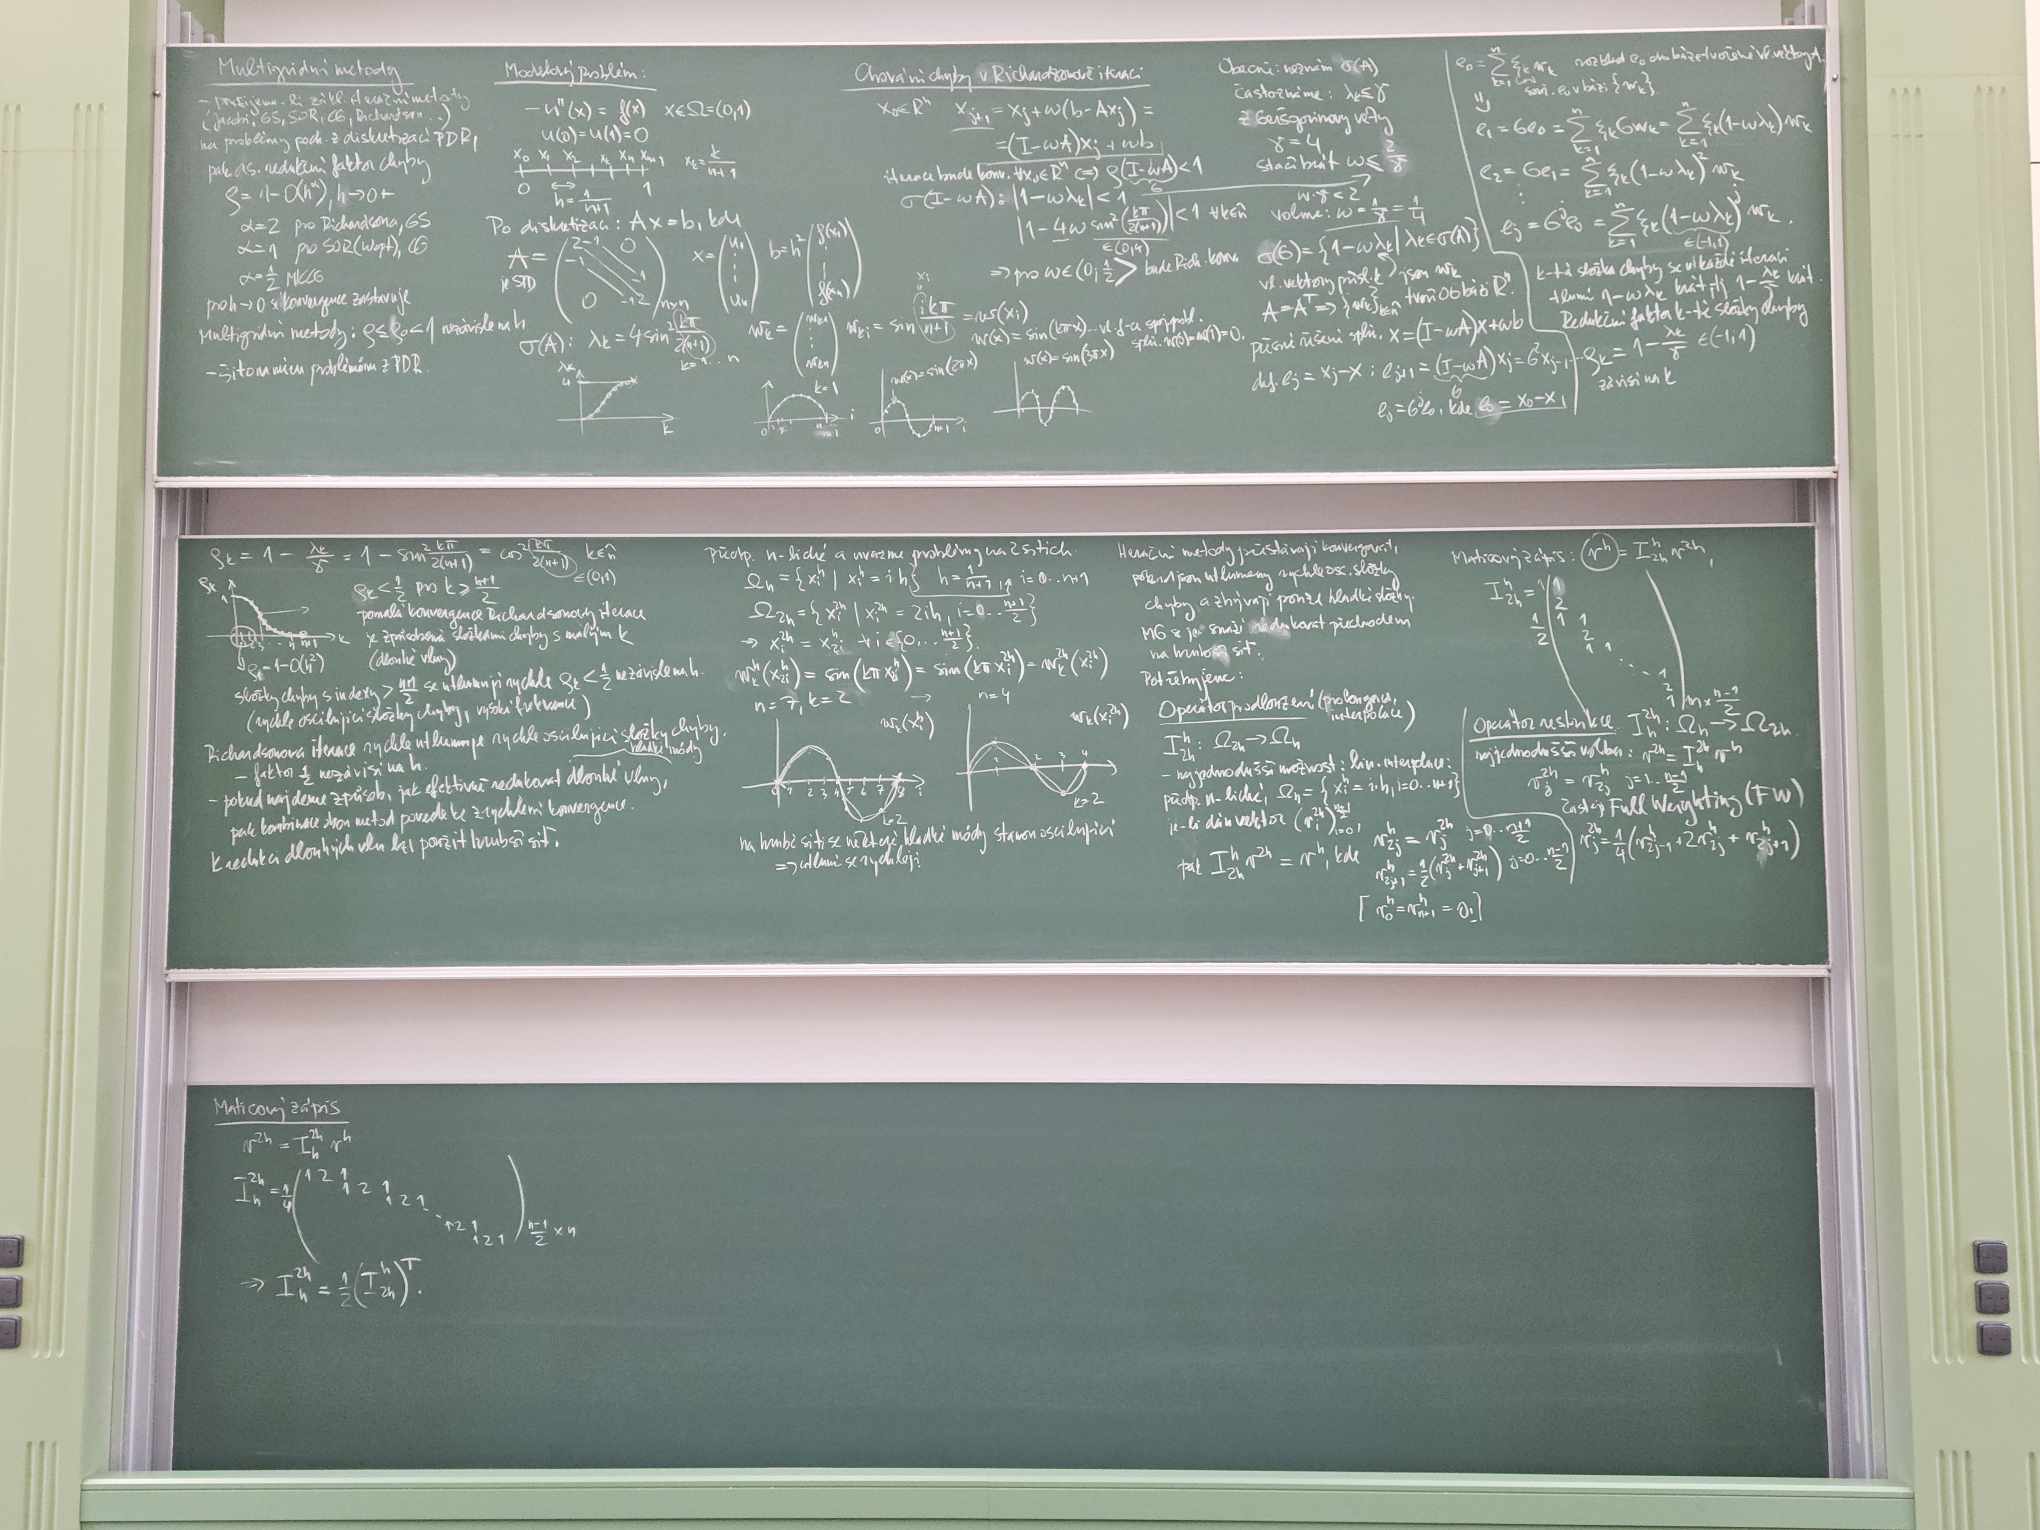 Multigridní metody
- použijeme-li zákl. iterační metody
(Jacobi, GS, SOR, CG, Richardson...)
na problémy poch. z diskretizací PDR,
pak as. redukční faktor chyby
ρ = 1 - O(h^α), h → 0+
α = 2 pro Richardsona, GS
α = 1 pro SOR(wopt), CG
α = 1/2 MICCG
pro h → 0 se konvergence zastavuje
Multigridní metody: ρ ≤ ρ₀ < 1 nezávisle na h
- šito na míru problémům z PDR.
Modelový problém:
-u''(x) = f(x) x ∈ Ω = (0,1)
u(0) = u(1) = 0
x₀ x₁ x₂ xₙ xₙ₊₁ x_k = k/(n+1)
0 1
h = 1/(n+1)
Po diskretizaci: Ax = b, kde
A = (2 -1 0 -1 -1 0 -1 2) n×n x = (u₁ ⋮ uₙ) b = h² (f(x₁) ⋮ f(xₙ))
je SPD
σ(A): λ_k = 4 sin² kπ/(2(n+1)) k = 1...n
λ_k 4 k
w_k = (w_k1 ⋮ w_kn) w_ki = sin ikπ/(n+1) = w(x_i)
w(x) = sin(kπx) ... vl. f-ce spoj. probl.
splň. w(0) = w(1) = 0.
k = 1 w(x) = sin(2πx) w(x) = sin(3πx)
Chování chyby v Richardsonově iteraci
x₀ ∈ Rⁿ x_{j+1} = x_j + ω(b - Ax_j) =
= (I - ωA)x_j + ωb
iterace bude konv. ∀x₀ ∈ Rⁿ ⟺ ρ(I - ωA) < 1
G
σ(I - ωA): |1 - ωλ_k| < 1
|1 - 4ω sin²(kπ/(2(n+1)))| < 1 ∀k ∈ n̂
∈ (0,4)
⇒ pro ω ∈ (0; 1/2> bude Rich. konv.
Obecně: neznám σ(A)
často známe: λ_k ≤ γ
z Geršgorinovy věty
γ = 4
stačí brát ω ≤ 2/γ
ω·γ < 2
volme: ω = 1/γ = 1/4
σ(G) = {1 - ωλ_k | λ_k ∈ σ(A)}
vl. vektory přísl. k jsou w_k
A = Aᵀ ⇒ {w_k}_{k∈n̂} tvoří OG bázi Rⁿ.
přesné řešení splň. x = (I - ωA)x + ωb
def. e_j = x_j - x : e_{j+1} = (I - ωA)x_j = G²x_{j-1} ...
G
e_j = G^j e₀, kde e₀ = x₀ - x
e₀ = Σ_{k=1}^n ξ_k w_k rozklad e₀ do báze tvořené vl. vektory
souř. e₀ v bázi {w_k}.
⇓
e₁ = Ge₀ = Σ_{k=1}^n ξ_k G w_k = Σ_{k=1}^n ξ_k (1 - ωλ_k) w_k
e₂ = Ge₁ = Σ_{k=1}^n ξ_k (1 - ωλ_k)² w_k
⋮
e_j = G^j e₀ = Σ_{k=1}^n ξ_k (1 - ωλ_k)^j w_k.
∈ (-1,1)
k-tá složka chyby se v každé iteraci
tlumí 1 - ωλ_k krát, tj. 1 - λ_k/γ krát.
Redukční faktor k-té složky chyby
ρ_k = 1 - λ_k/γ ∈ (-1,1)
závisí na k
ρ_k = 1 - λ_k/γ = 1 - sin² kπ/(2(n+1)) = cos² kπ/(2(n+1)) k ∈ n̂
∈ (0,1)
ρ_k < 1/2 pro k ≥ (n+1)/2
pomalá konvergence Richardsonovy iterace
je způsobena složkami chyby s malým k
(dlouhé vlny)
ρ_k 1 1 2 3 ... n n+1 k
ρ₁ = 1 - O(h²)
složky chyby s indexy > (n+1)/2 se utlumují rychle ρ_k < 1/2 nezávisle na h.
(rychle oscilující složky chyby, vysoké frekvence)
Richardsonova iterace rychle utlumuje rychle oscilující složky chyby.
- faktor 1/2 nezávisí na h. hladké módy
- pokud najdeme způsob, jak efektivně redukovat dlouhé vlny,
pak kombinace obou metod povede ke zrychlení konvergence.
K redukci dlouhých vln lze použít hrubší síť.
Předp. n-liché a uvažme problémy na 2 sítích.
Ω_h = {x_i^h | x_i^h = ih} h = 1/(n+1), i = 0...n+1
Ω_2h = {x_i^2h | x_i^2h = 2ih, i = 0...(n+1)/2}
⇒ x_i^2h = x_2i^h ∀i ∈ {0,...(n+1)/2}.
w_k^h(x_2i^h) = sin(kπx_2i^h) = sin(kπx_i^2h) = w_k^2h(x_i^2h)
n = 7, k = 2 → n = 4
w_k(x_i^h) w_k(x_i^2h)
0 1 2 3 4 5 6 7 8 i
k = 2
1 2 3 4
k = 2
na hrubé síti se některé hladké módy stanou oscilující
⇒ utlumí se rychleji
Iterační metody přestávají konvergovat,
pokud jsou utlumeny rychle osc. složky
chyby a zbývají pouze hladké složky.
MG se je snaží redukovat přechodem
na hrubší síť.
Potřebujeme:
Operátor prodloužení (prolongace,
interpolace)
I_2h^h : Ω_2h → Ω_h
- nejjednodušší možnost: lin. interpolace:
předp. n-liché, Ω_h = {x_i^h = i·h, i = 0...n+1}
je-li dán vektor (v_i^2h)_{i=0}^{(n+1)/2}
pak I_2h^h v^2h = v^h, kde v_2j^h = v_j^2h j = 0...(n+1)/2
v_{2j+1}^h = 1/2 (v_j^2h + v_{j+1}^2h) j = 0...(n-1)/2
[v_0^h = v_{n+1}^h = 0.]
Maticový zápis: v^h = I_2h^h v^2h,
I_2h^h = 1/2 (1 2 1 1 2 1 1 ... 1 2 1) n × (n-1)/2
Operátor restrikce I_h^2h : Ω_h → Ω_2h.
nejjednodušší volba: v^2h = I_h^2h v^h
v_j^2h = v_2j^h j = 1...(n-1)/2
častěji Full Weighting (FW)
v_j^2h = 1/4 (v_{2j-1}^h + 2v_{2j}^h + v_{2j+1}^h)
Maticový zápis
v^2h = I_h^2h v^h
I_h^2h = 1/4 (1 2 1 1 2 1 1 2 1 ... 1 2 1 1 2 1) (n-1)/2 × n
⇒ I_h^2h = 1/2 (I_2h^h)ᵀ.